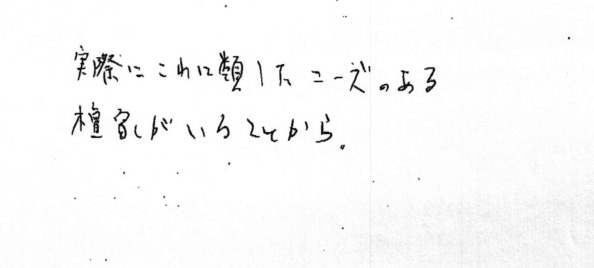 実際にこれに類したニーズのある
檀家がいることから。